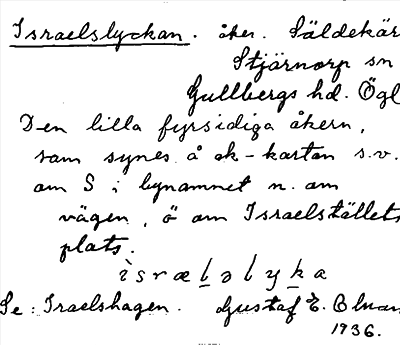 Israelslyckan. åker. Säldekär
Stjärnorp sn
Gullbergs hd. Ögl
Den lilla fyrsidiga åkern,
som synes å ek-kartan s.v.
om S i bynamnet n. om
vägen, ö om Israelställets
plats.
ìsrælǝlyka
Se: Israelshagen. Gustaf E. Olman
1936.